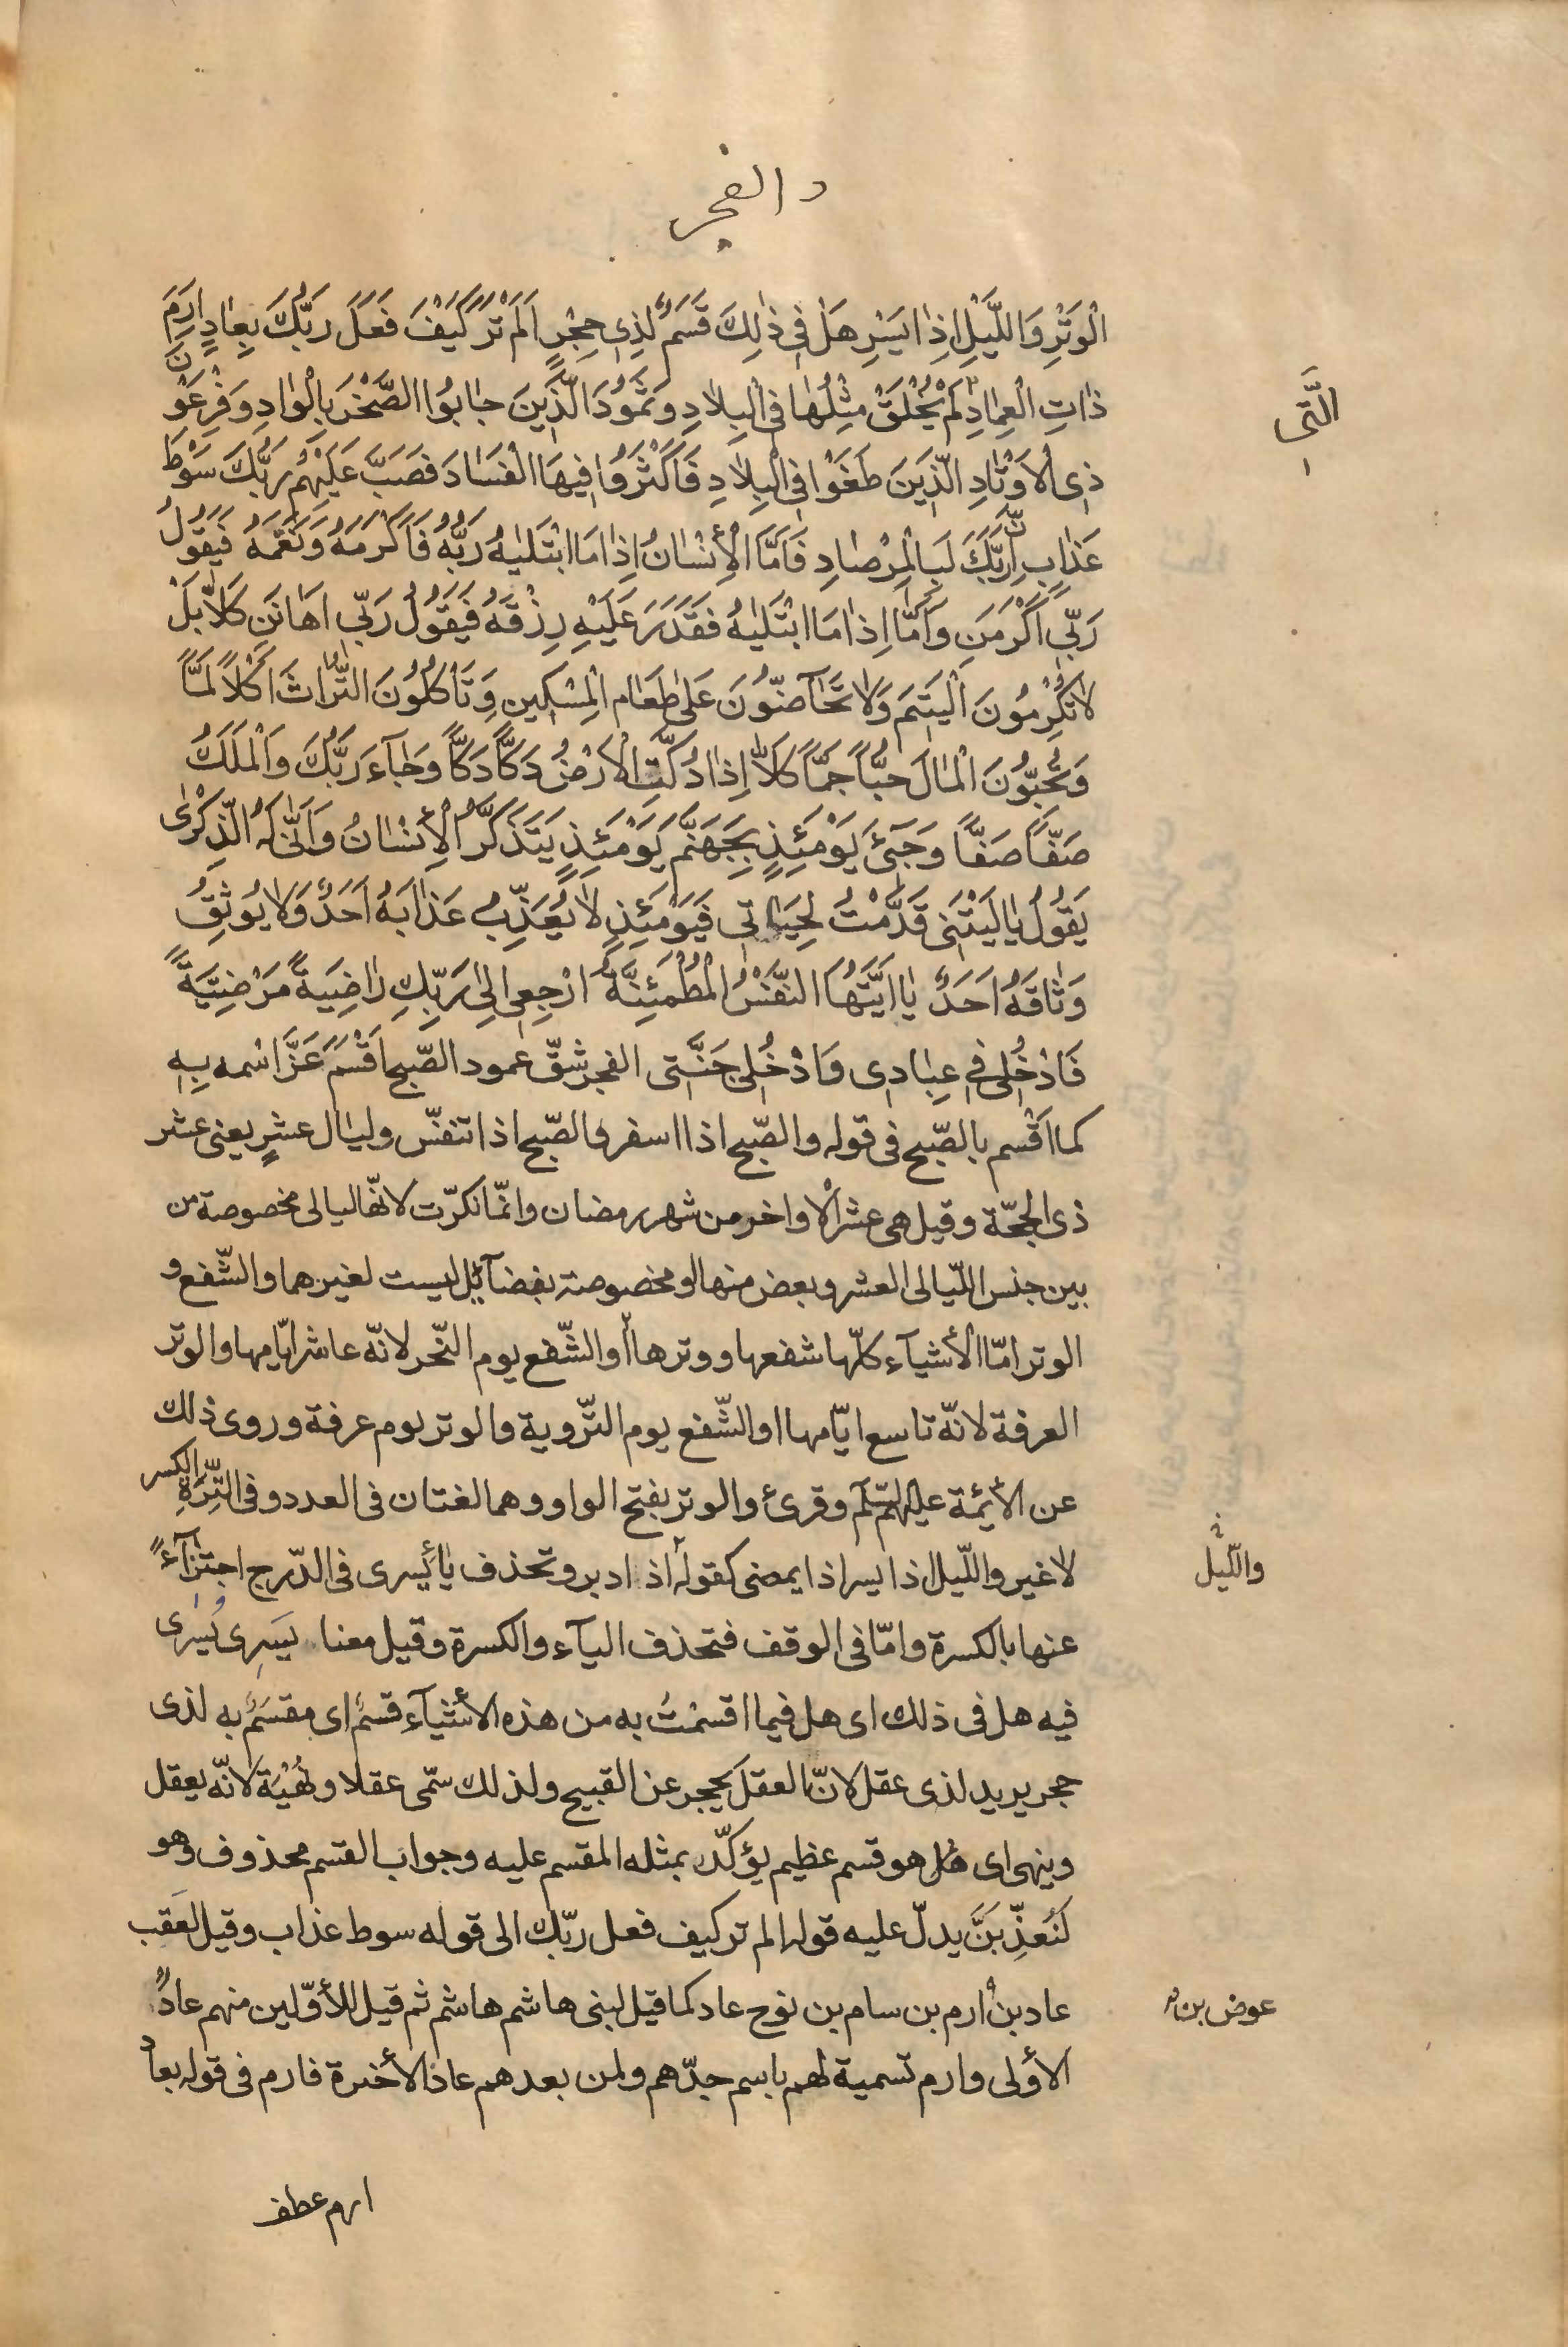 والفجر
الْوَتْرِ وَاللَّيْلِ اِذٰا يَسْرِ هَلْ فِى ذٰلِكَ قَسَمٌ لِذِى حِجْرٍ اَلَمْ تَرَ كَيْفَ فَعَلَ رَبُّكَ بِعٰادٍ اِرَمَ
ذٰاتِ الْعِمٰادِ لَمْ يُخْلَقْ مِثْلُهٰا فِى الْبِلٰادِ وَثَمُودَ الَّذِينَ جٰابُوا الصَّخْرَ بِالْوٰادِ وَفِرْعَوْنَ
الَّتى
ذِى الْاَوْتٰادِ الَّذِينَ طَغَوْا فِى الْبِلٰادِ فَاَكْثَرُوا فِيهَا الْفَسَادَ فَصَبَّ عَلَيْهِمْ رَبُّكَ سَوْطَ
عَذٰابٍ اِنَّ رَبَّكَ لَبِالْمِرْصٰادِ فَاَمَّا الْاِنْسٰانُ اِذٰا مَا ابْتَلٰيهُ رَبُّهُ فَاَكْرَمَهُ وَنَعَّمَهُ فَيَقُولُ
رَبِّى اَكْرَمَنِ وَاَمَّا اِذٰا مَا ابْتَلٰيهُ فَقَدَرَ عَلَيْهِ رِزْقَهُ فَيَقُولُ رَبِّى اَهٰانَنِ كَلَّا بَلْ
لٰا تُكْرِمُونَ الْيَتيمَ وَلٰا تَحٰآضُّونَ عَلىٰ طَعٰامِ الْمِسْكِينِ وَتَاْكُلُونَ التُّرٰاثَ اَكْلاً لَمًّا
وَتُحِبُّونَ الْمٰالَ حُبًّا جَمًّا كَلَّا اِذٰا دُكَّتِ الْاَرْضُ دَكًّا دَكًّا وَجٰآءَ رَبُّكَ وَالْمَلَكُ
صَفًّا صَفًّا وَجِىءَ يَوْمَئِذٍ بِجَهَنَّمَ يَوْمَئِذٍ يَتَذَكَّرُ الْاِنْسٰانُ وَاَنّٰى لَهُ الذِّكْرٰى
يَقُولُ يٰا لَيْتَنِى قَدَّمْتُ لِحَيٰاتِى فَيَوْمَئِذٍ لٰا يُعَذِّبُ عَذٰابَهُ اَحَدٌ وَلٰا يُوثِقُ
وَثٰاقَهُ اَحَدٌ يٰا اَيَّتُهَا النَّفْسُ الْمُطْمَئِنَّةُ ارْجِعِى اِلىٰ رَبِّكِ رٰاضِيَةً مَرْضِيَّةً
فَادْخُلِى فِى عِبٰادِى وَادْخُلِى جَنَّتى الفجر شقّ عمود الصّبح اَقْسَمَ عَزَّ اسْمه بِهِ
كما اَقْسم بالصّبح فى قوله والصّبح اذا اسفر والصّبح اذا تنفّس وليٰال عشرٍ يعنى عشر
ذى الحجّة وقيل هى عشر الْاواخر من شهر رمضان وانّما نكرّت لانّها ليالى مخصوصة من
بين جنس اللّيالى العشر وبعض منها او مخصوصة بفضآئل ليست لغيرهما والشّفع و
الوتر امّا الأشيآء كلّها شفعها ووترها او الشّفع يوم النّحر لانّه عاشر ايّامها والوتر
العرفة لانّه تاسع ايّامها او الشّفع يوم التّروية والوتر يوم عرفة وروى ذلك
عن الأئمّة عليهم السّلم وقرئ والوتر بفتح الواو وهما لغتان فى العدد وفى التِّرَةِ الكسر
لاغير واللّيل اذا يسر اذا يمضى كقوله اذ ادبر وتحذف يٰا يسرى فى الدّرج اجتزٰآءً
والّليل
عنها بالكسرة وامّا فى الوقف فتحذف اليآء والكسرة وقيل معنا يَسرِى يُسْرٰى
فيه هل فى ذلك اى هل فيما اقسمْتُ به من هذه الأشيآء قسمٌ اى مقسَمٌ به لذى
حجر يريد لذى عقل لانّ العقل يحجر عن القبيح ولذلك سمّى عقلا ونُهْيَة لانّه يعقل
وينهى اى هل هو قسم عظيم يؤكّد بمثله المقسم عليه وجواب القسم محذوف وهو
لَنُعَذِّبَنَّ يدلّ عليه قوله الم تر كيف فعل ربّك الى قوله سوط عذاب وقيل لعَقب
عاد بن ارم بن سام بن نوح عاد كما قيل لبنى هاشم هاشم ثم قيل للأوّلين منهم عادٌ
عوض بن
الأولى وارم تسمية لهم باسم جدّهم ولمن بعدهم عاد الأخرة فارم فى قوله بعاد
ارم عطف